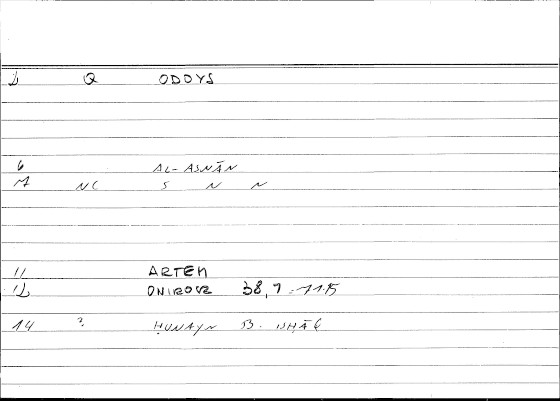 2 Q ODOYS
6 AL-ASNĀN
NC S N N
11 ARTEM
12 ONIROCR 38,7
14 ? ḤUNAYN B. ISḤĀQ